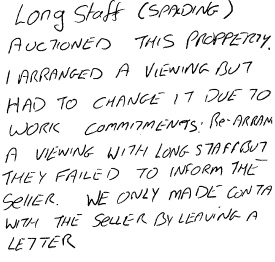 Long Staff (SPALDING)
AUCTIONED THIS PROPPERTY.
I ARRANGED A VIEWING BUT
HAD TO CHANGE IT DUE TO
WORK COMMITMENTS. RE-ARRAN
A VIEWING WITH LONG STAFF BUT
THEY FAILED TO INFORM THE
SELLER. WE ONLY MADE CONTA
WITH THE SELLER BY LEAVING A
LETTER